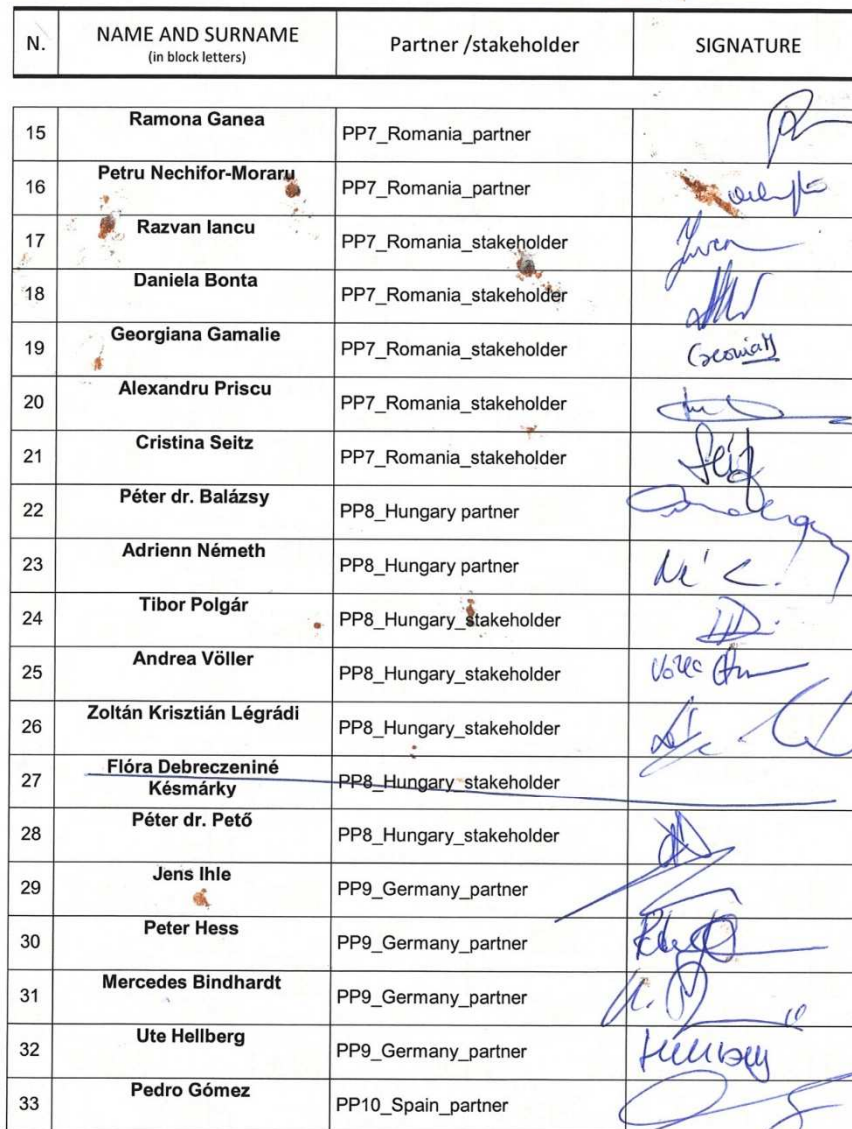 N. NAME AND SURNAME Partner /stakeholder SIGNATURE
(in block letters)
15 Ramona Ganea PP7_Romania_partner
16 Petru Nechifor-Moraru PP7_Romania_partner
17 Razvan Iancu PP7_Romania_stakeholder
18 Daniela Bonta PP7_Romania_stakeholder
19 Georgiana Gamalie PP7_Romania_stakeholder
20 Alexandru Priscu PP7_Romania_stakeholder
21 Cristina Seitz PP7_Romania_stakeholder
22 Péter dr. Balázsy PP8_Hungary partner
23 Adrienn Németh PP8_Hungary partner
24 Tibor Polgár PP8_Hungary_stakeholder
25 Andrea Völler PP8_Hungary_stakeholder
26 Zoltán Krisztián Légrádi PP8_Hungary_stakeholder
27 Flóra Debreczeniné PP8_Hungary_stakeholder
Késmárky
28 Péter dr. Pető PP8_Hungary_stakeholder
29 Jens Ihle PP9_Germany_partner
30 Peter Hess PP9_Germany_partner
31 Mercedes Bindhardt PP9_Germany_partner
32 Ute Hellberg PP9_Germany_partner
33 Pedro Gómez PP10_Spain_partner